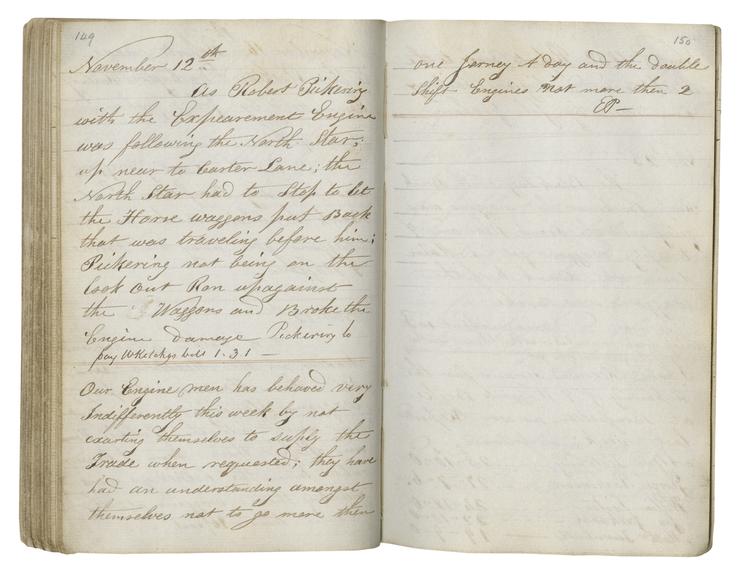 149
November 12th
As Robert Pickering
with the Expearement Engine
was following the North Star;
up near to Carter Lane; the
North Star had to Stop to let
the Horse waggons put Back
that was traveling before him;
Pickering not being on the
look out Ran upagainst
the Waggons and Broke the
Engine damage Pickering to
pay bill 1-3-1 —
Our Engine men has behaved very
Indifferently this week by not
exarting themselves to suply the
Trade when requested; they have
had an understanding amongst
themselves not to go more then
150
one Jorney A day and the double
Shift Engines not more then 2
EP—